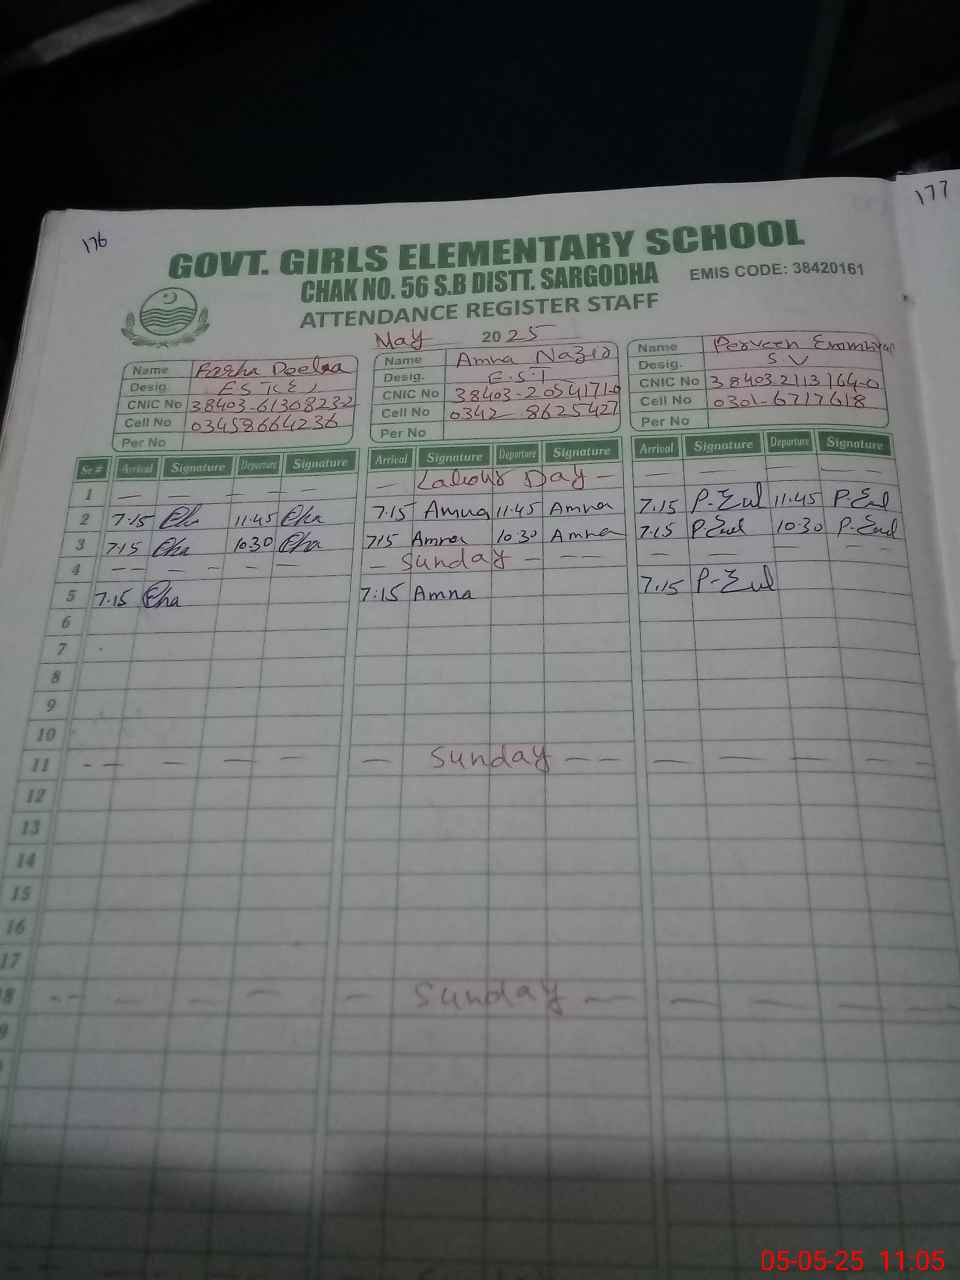 176
177
GOVT. GIRLS ELEMENTARY SCHOOL
CHAK NO. 56 S.B DISTT. SARGODHA
EMIS CODE: 38420161
ATTENDANCE REGISTER STAFF
May 2025
Name Amna Nazir
Name Perveen
Desig. E.S.T
Desig. S V
CNIC No 38403-61308232
CNIC No 38403-2054171-0
CNIC No 384032113164-0
Cell No 03458664236
Cell No 0342-8625427
Cell No 0301-6717618
Per No
Per No
Per No
Sr # Arrival Signature Departure Signature Arrival Signature Departure Signature Arrival Signature Departure Signature
1 — — — — — Labour Day — — — — —
2 7.15 11.45 7.15 Amna 11.45 Amna 7.15 11.45
3 7.15 10.30 7.15 Amna 10.30 Amna 7.15 10.30
4 — — — — — Sunday — — — — —
5 7.15 7.15 Amna 7.15
6
7
8
9
10
11 — — — — — Sunday — — — — — —
12
13
14
15
16
17
8 — — — — — Sunday — — — — —
9
05-05-25 11.05